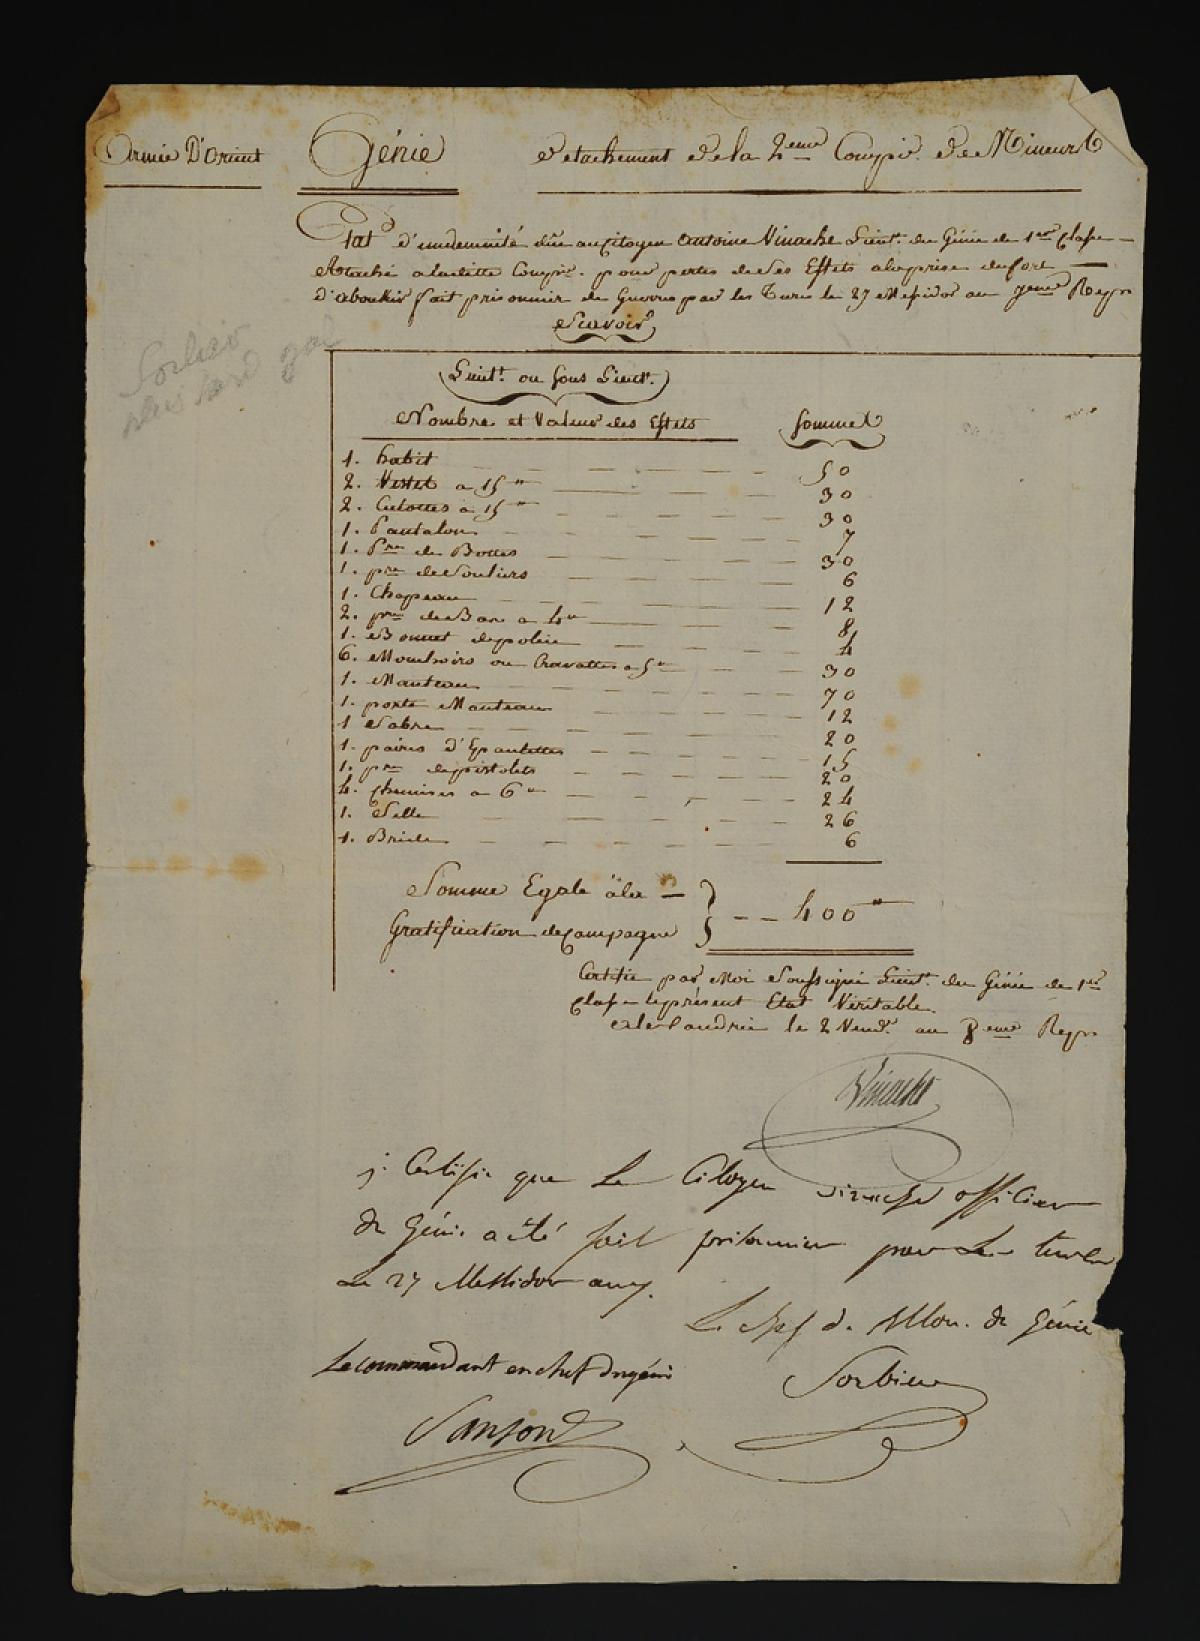 Armée D'Orient
Génie
Détachement de la 2eme Compie. de Mineurs
Etat d'indemnité dûe au citoyen Antoine Vinache Lieut. du Génie de 1ere Classe
Attaché a laditte Compie. pour pertes de ses Effets a la prise du fort
d'aboukir fait prisonnier de Guerre par les Turcs le 27 Messidor an 7eme Repn
Scavoir
Sorbier
plus tard gal
Lieut. ou Sous Lieut.
Nombre et Valeur des Effets
Sommes
1. habit 50
2. Vestes a 15" 30
2. Culottes a 15" 30
1. Pantalon 7
1. Pre de Bottes 30
1. pre de Souliers 6
1. Chapeau 12
2. pres de Bas a 4" 8
1. Bonnet de police 4
6. Mouchoirs ou Cravattes a 5" 30
1. Manteau 70
1. porte Manteau 12
1 Sabre 20
1. paires d'Epaulettes 15
1. pre de pistolets 20
4. chemises a 6" 24
1. Selle 26
1. Bride 6
Somme Egale à la
Gratification de Campagne
400"
Certifié par Moi Soussigné Lieut. du Génie de 1ere
classe le présent Etat Véritable.
Alexandrie le 2 Vend. an 8eme Repn
Vinache
j. Certifie que Le Citoyen vinache officier
de Génie a été fait prisonnier par Les turcs
Le 27 Messidor an 7.
Le chef de Bllon. de Génie
Sorbier
Le commandant en chef du génie
Sanson